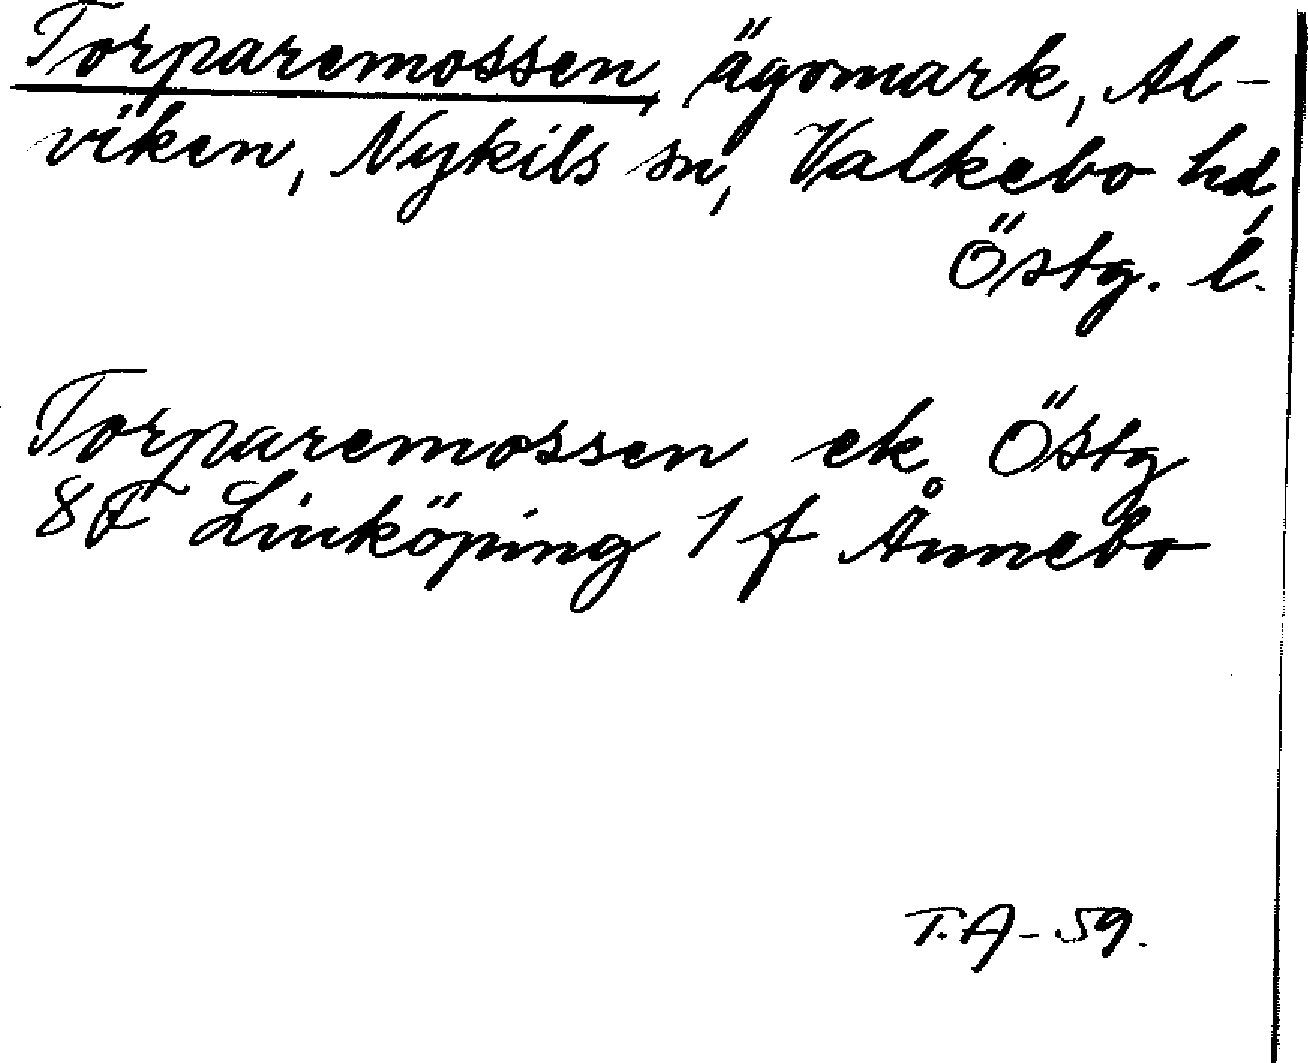 Torparemossen, ägomark, Al-
viken, Nykils sn, Valkebo hd,
Östg. l.
Torparemossen ek. Östg
8F Linköping 1 f Ånnebo
T.A - 59.